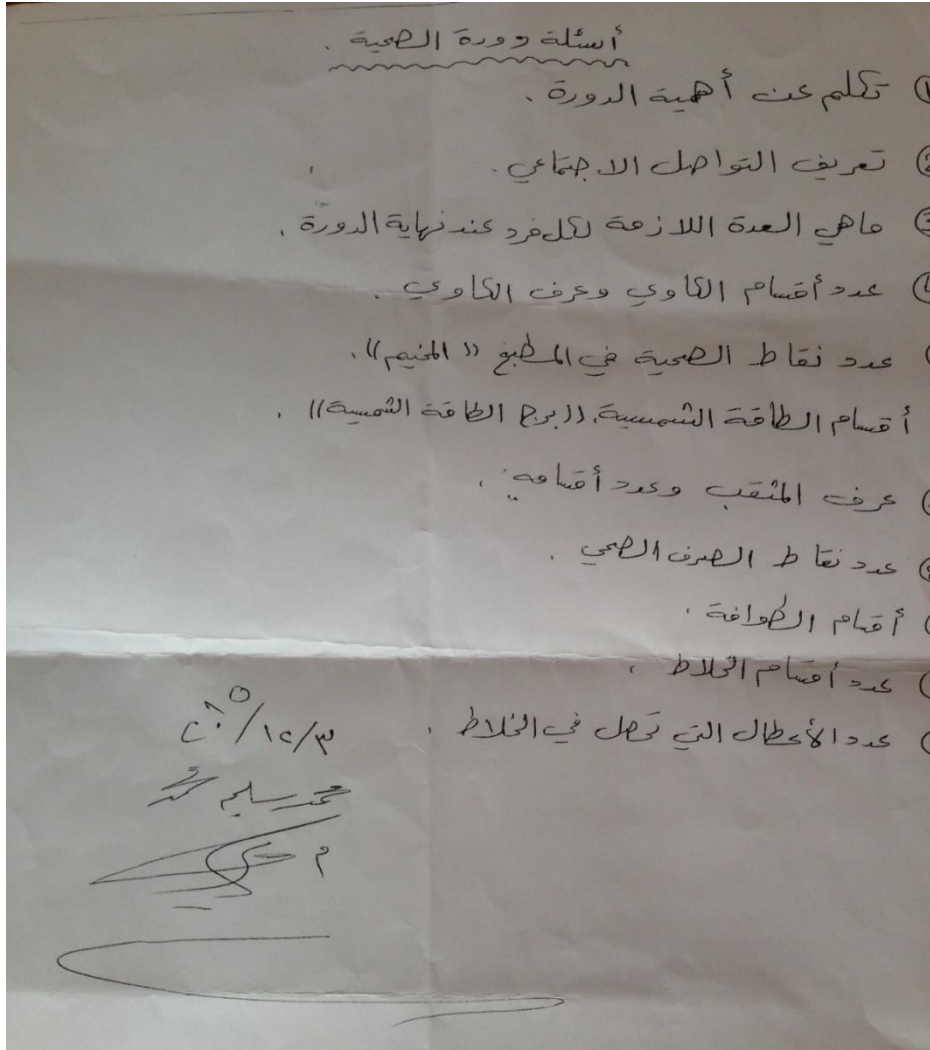 أسئلة دورة الصحية .
① تكلم عن أهمية الدورة .
② تعريف التواصل الاجتماعي .
③ ماهي العدة اللازمة لكل فرد عند نهاية الدورة .
④ عدد أقسام الكاوي وعرف الكاوي .
عدد نقاط الصحية في المطبخ (( المخيم )) .
أقسام الطاقة الشمسية ((برج الطاقة الشمسية)) .
عرف المثقب وعدد أقسامه .
عدد نقاط الصرف الصحي .
أقسام الطوافة .
عدد أقسام الخلاط .
عدد الأعطال التي تحصل في الخلاط .
١٢/٣
محمد سليم
م